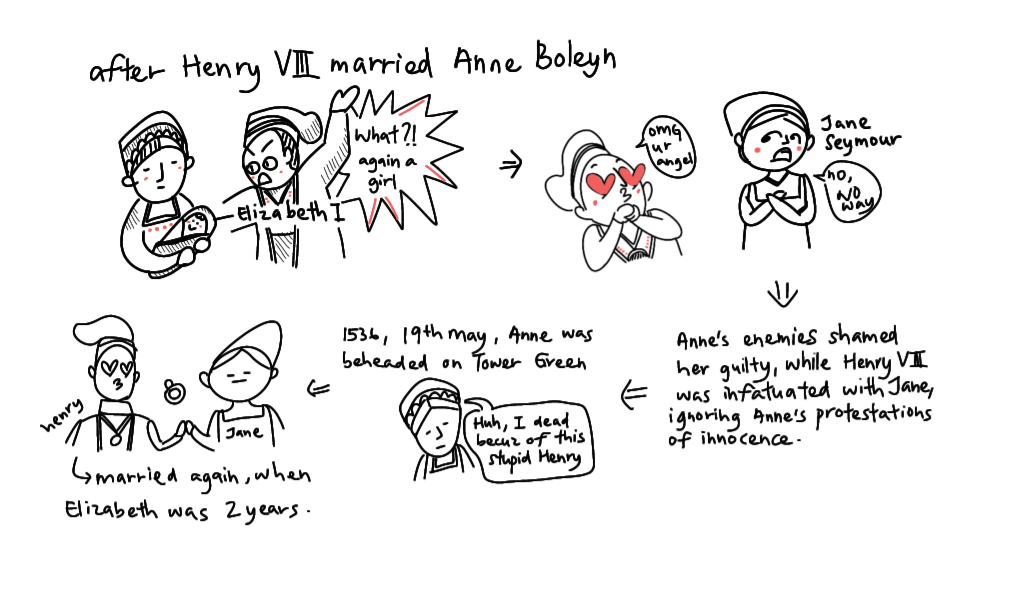 after Henry VIII married Anne Boleyn
What?!
again a
girl
Elizabeth I
omg
ur
angel
Jane
Seymour
no,
NO
way
Anne's enemies shamed
her guilty, while Henry VIII
was infatuated with Jane,
ignoring Anne's protestations
of innocence.
1536, 19th may, Anne was
beheaded on Tower Green
Huh, I dead
becuz of this
stupid Henry
henry
Jane
married again, when
Elizabeth was 2 years.